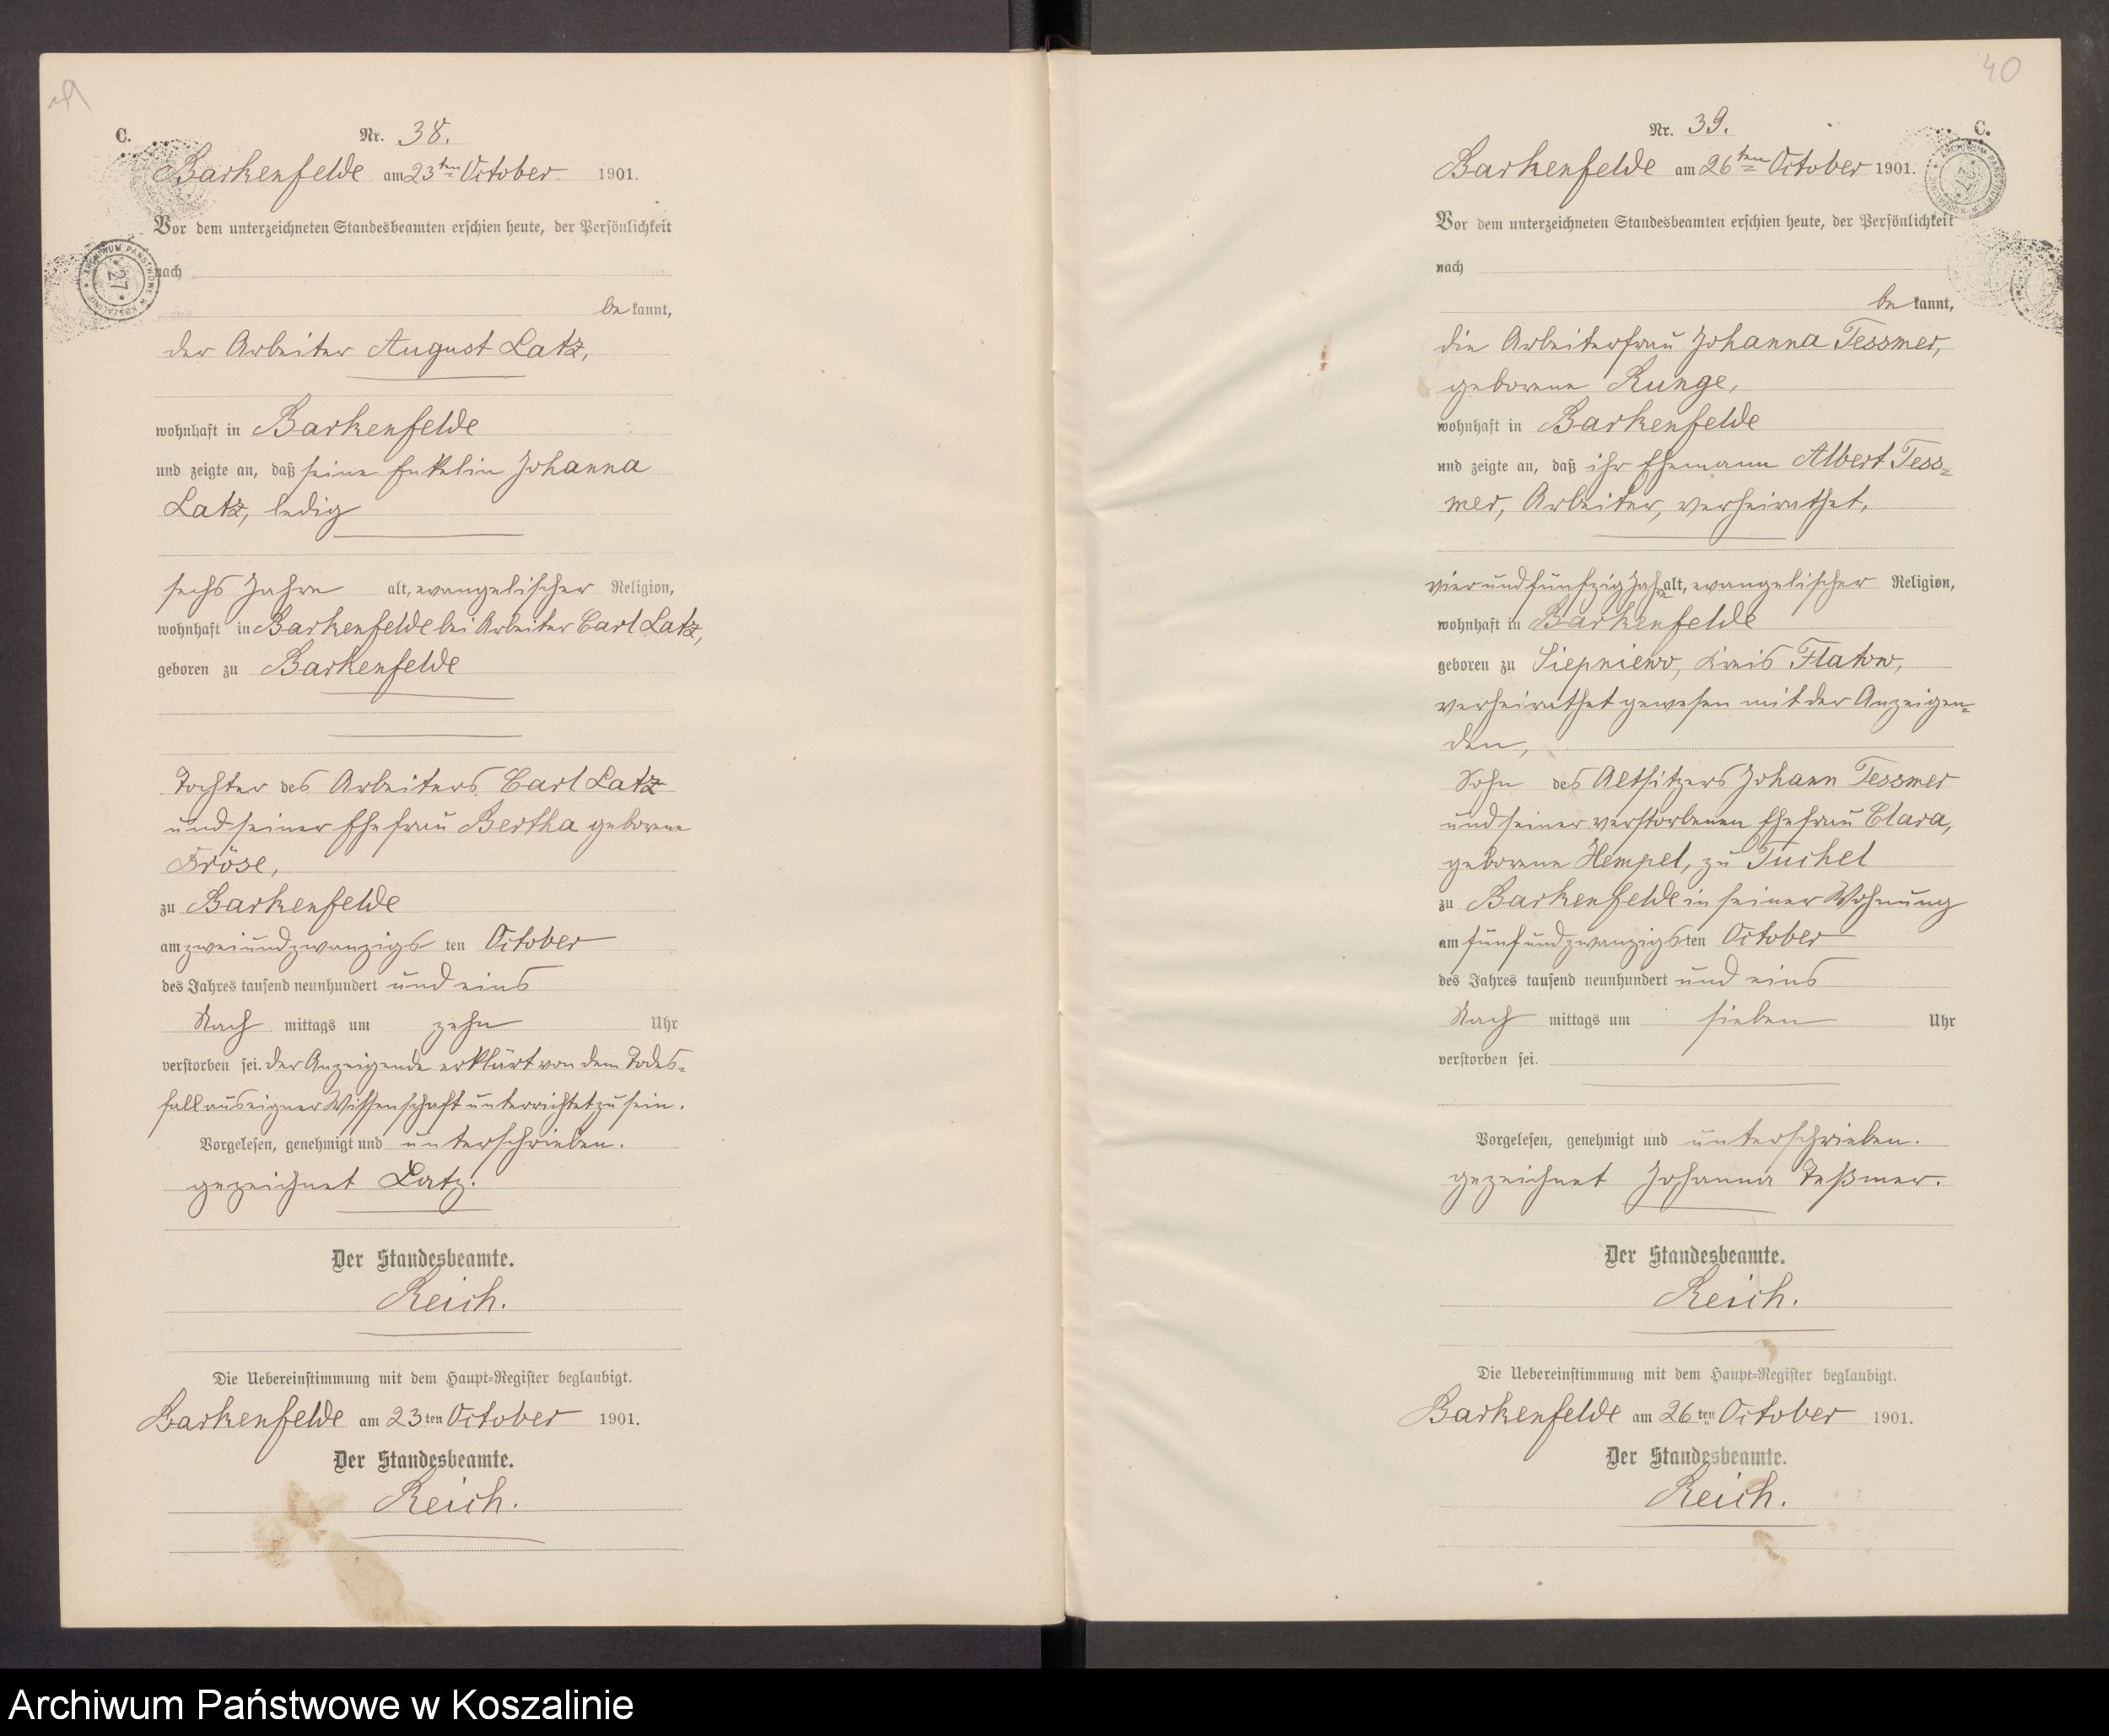 C.
Nr. 38.
Barkenfelde am 23ten October 1901.
Vor dem unterzeichneten Standesbeamten erschien heute, der Persönlichkeit
nach
be kannt,
der Arbeiter August Latz,
wohnhaft in Barkenfelde
und zeigte an, daß seine Enkelin Johanna
Latz, ledig
sechs Jahre alt, evangelischer Religion,
wohnhaft in Barkenfelde bei Arbeiter Carl Latz,
geboren zu Barkenfelde
Tochter des Arbeiters Carl Latz
und seiner Ehefrau Bertha geborene
Dröse,
zu Barkenfelde
am zweiundzwanzigs ten October
des Jahres tausend neunhundert und eins
Nach mittags um zehn Uhr
verstorben sei. Der Anzeigende erklärt von dem Todes=
fall aus eigner Wissenschaft unterrichtet zu sein.
Vorgelesen, genehmigt und unterschrieben.
gezeichnet Latz.
Der Standesbeamte.
Reich.
Die Uebereinstimmung mit dem Haupt=Register beglaubigt.
Barkenfelde am 23ten October 1901.
Der Standesbeamte.
Reich.
40
Nr. 39.
C.
Barkenfelde am 26ten October 1901.
ARCHIWUM PAŃSTWOWE W KOSZALINIE
27
Vor dem unterzeichneten Standesbeamten erschien heute, der Persönlichkeit
nach
be kannt,
die Arbeiterfrau Johanna Tessmer,
geborene Runge,
wohnhaft in Barkenfelde
und zeigte an, daß ihr Ehemann Albert Tess=
mer, Arbeiter, verheirathet,
vierundfünfzig Jahre alt, evangelischer Religion,
wohnhaft in Barkenfelde
geboren zu Siepniewo, Kreis Flatow,
verheirathet gewesen mit der Anzeigen=
den,
Sohn des Altsitzers Johann Tessmer
und seiner verstorbenen Ehefrau Clara,
geborene Hempel, zu Tuchel
zu Barkenfelde in seiner Wohnung
am fünfundzwanzigsten October
des Jahres tausend neunhundert und eins
Nach mittags um sieben Uhr
verstorben sei.
Vorgelesen, genehmigt und unterschrieben.
gezeichnet Johanna Teßmer.
Der Standesbeamte.
Reich.
Die Uebereinstimmung mit dem Haupt=Register beglaubigt.
Barkenfelde am 26ten October 1901.
Der Standesbeamte.
Reich.
Archiwum Państwowe w Koszalinie